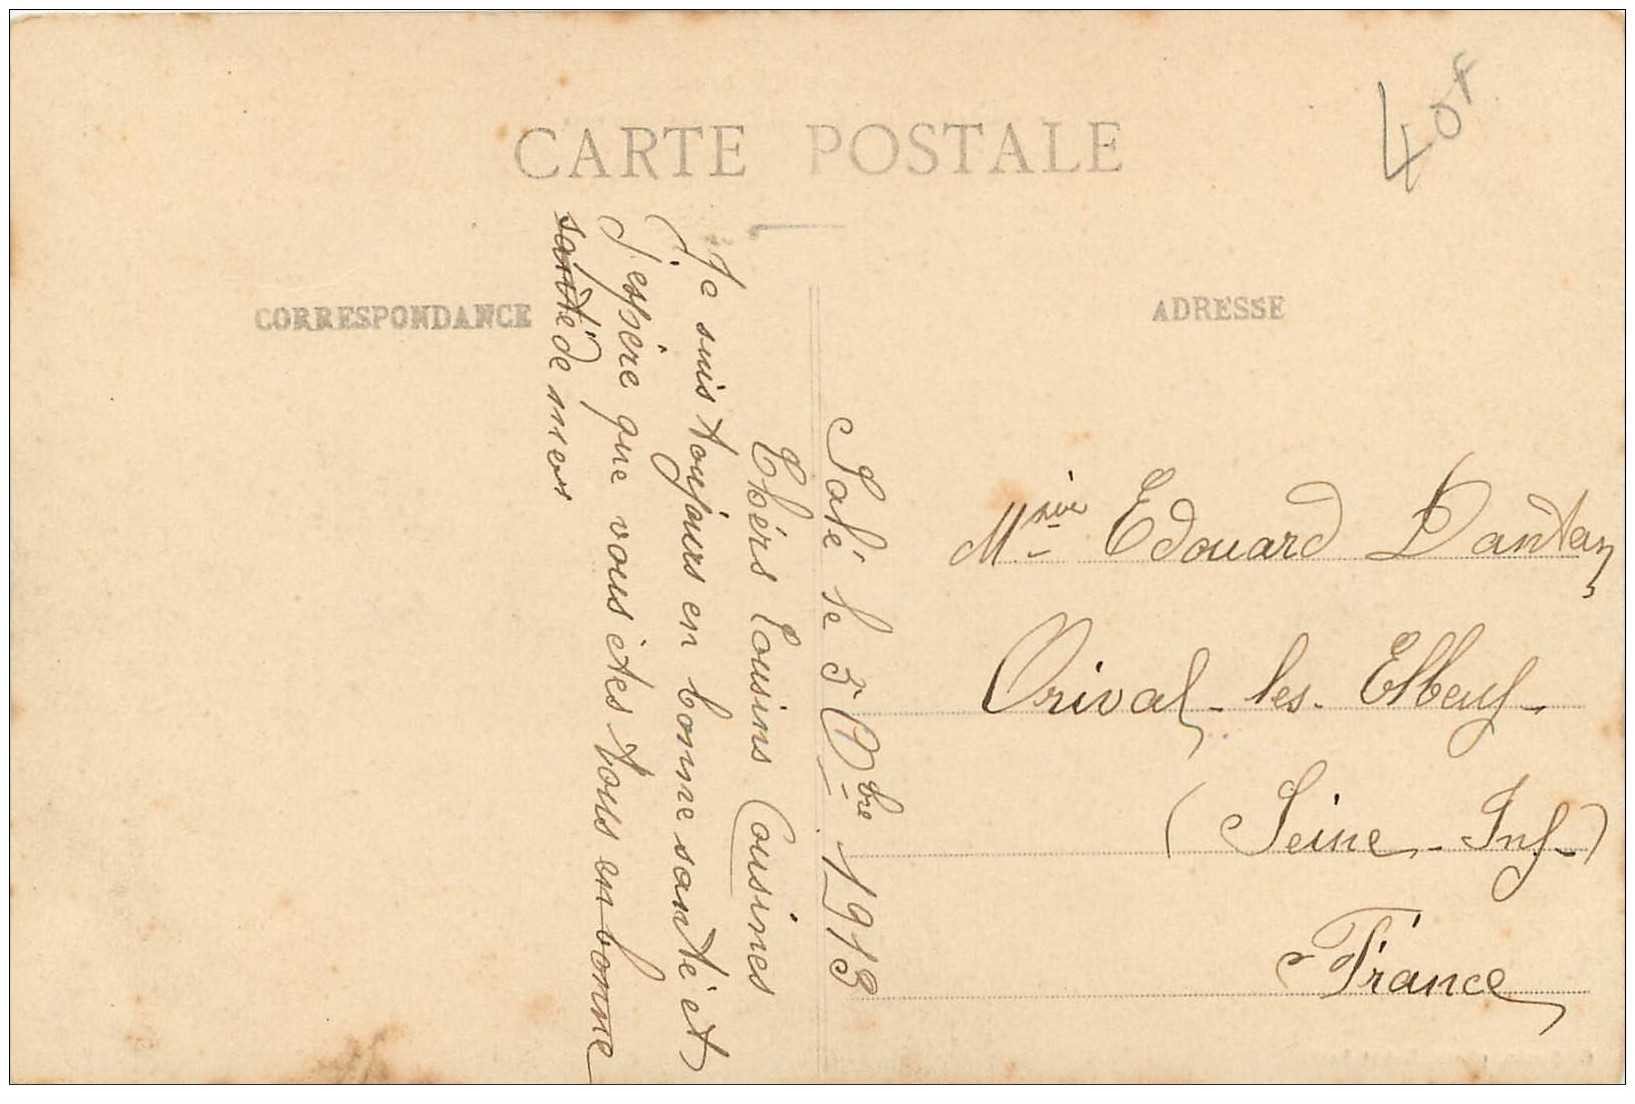 CARTE POSTALE
40f
CORRESPONDANCE
ADRESSE
Salé le 3 9bre 1913
Chérs Cousins Cousines
Je suis toujours en bonne santé et
J'espère que vous êtes tous en bonne
santé de mes
Edouard Dantan
Orival-les-Elbeuf-
(Seine-Inf-)
France